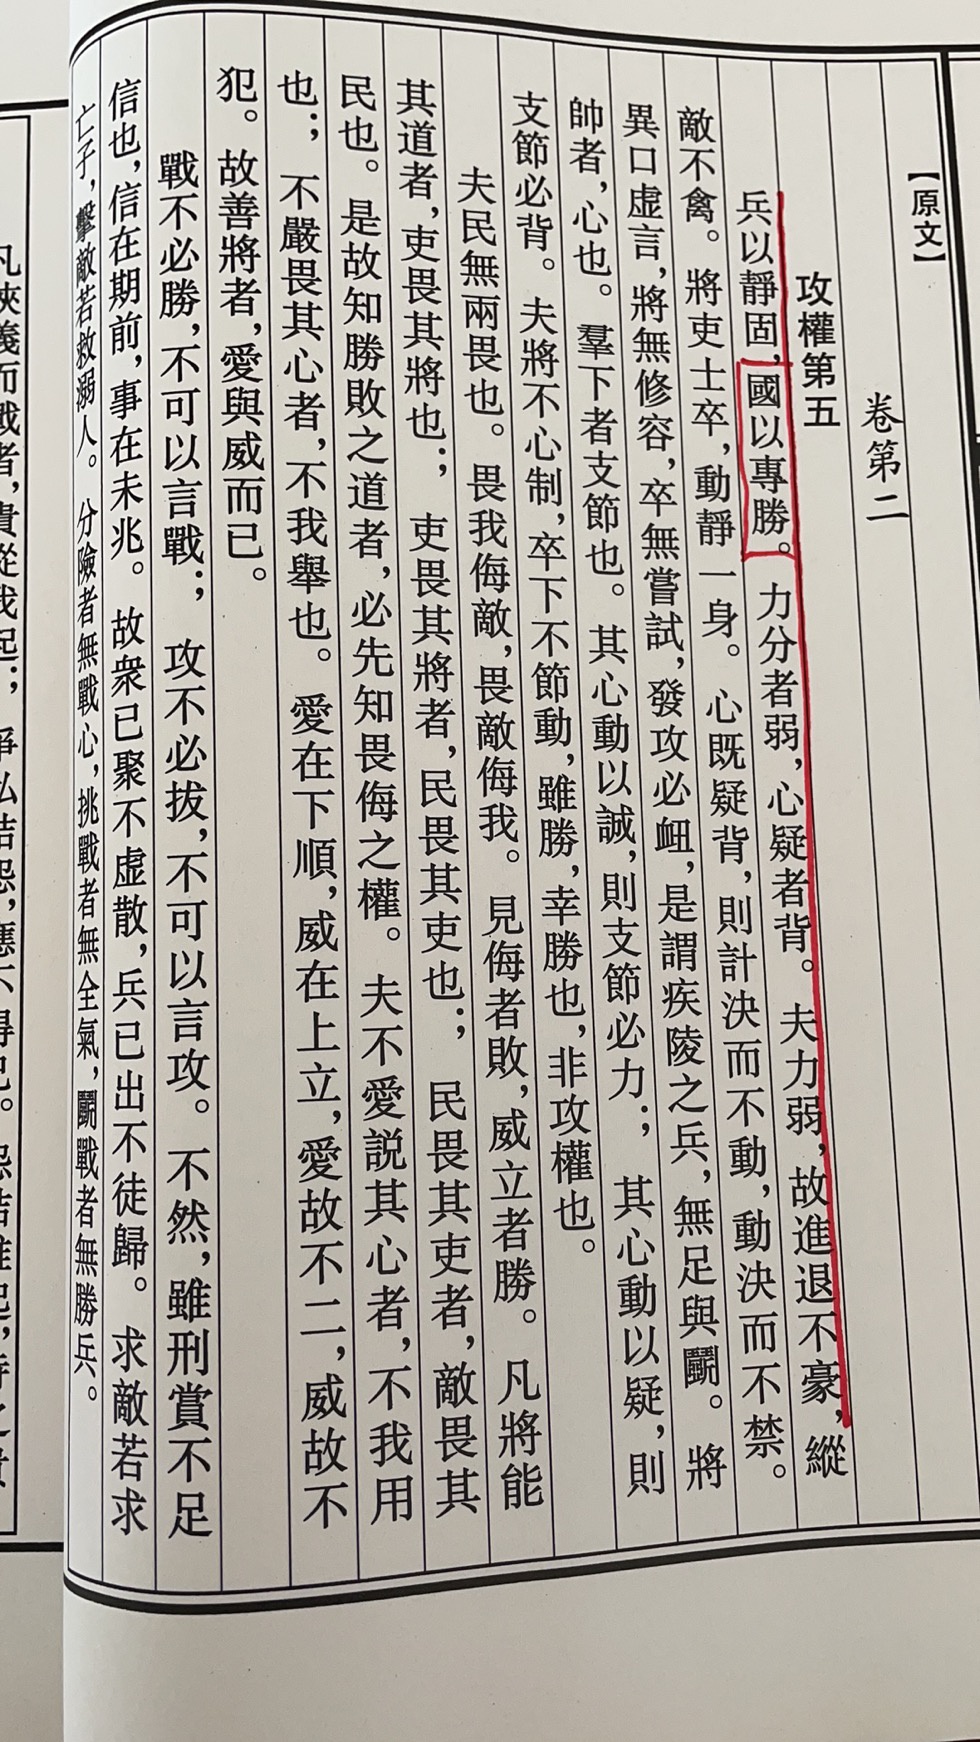 【原文】
卷第二
攻權第五
兵以靜固，國以專勝。力分者弱，心疑者背。夫力弱，故進退不豪，縱
敵不禽。將吏士卒，動靜一身。心既疑背，則計決而不動，動決而不禁。
異口虛言，將無修容，卒無嘗試，發攻必衄，是謂疾陵之兵，無足與鬬。將
帥者，心也。羣下者支節也。其心動以誠，則支節必力；其心動以疑，則
支節必背。夫將不心制，卒下不節動，雖勝，幸勝也，非攻權也。
夫民無兩畏也。畏我侮敵，畏敵侮我。見侮者敗，威立者勝。凡將能
其道者，吏畏其將也；吏畏其將者，民畏其吏也；民畏其吏者，敵畏其
民也。是故知勝敗之道者，必先知畏侮之權。夫不愛説其心者，不我用
也；不嚴畏其心者，不我舉也。愛在下順，威在上立，愛故不二，威故不
犯。故善將者，愛與威而已。
戰不必勝，不可以言戰；攻不必拔，不可以言攻。不然，雖刑賞不足
信也，信在期前，事在未兆。故衆已聚不虛散，兵已出不徒歸。求敵若求
亡子，擊敵若救溺人。分險者無戰心，挑戰者無全氣，鬬戰者無勝兵。
而戰者，貴從我起；爭私結怨，應不得已。怨結